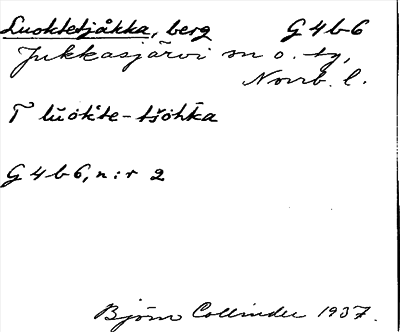 Luoktetjåkka, berg G4b6
Jukkasjärvi sn o. tg,
Norrb. l.
T lŭòk'te-tšŏhkka
G4b6, n:r 2
Björn Collinder 1937.